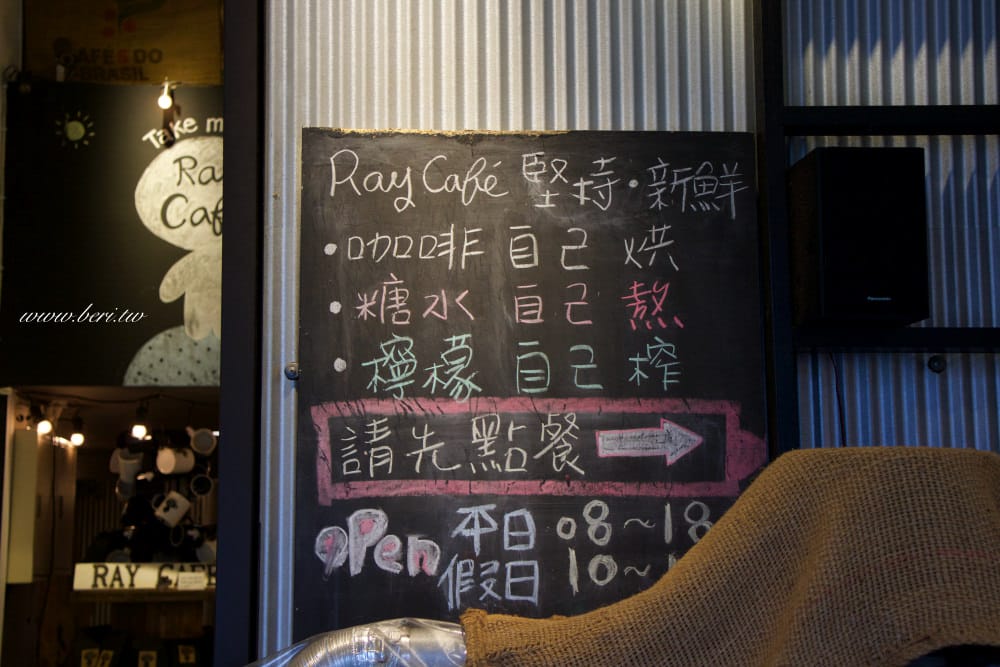 CAFES DO
BRASIL
Take m
Ray
Caf
www.beri.tw
RAY CAFE
Ray Café 堅持・新鮮
・咖啡 自己 烘
・糖水 自己 熬
・檸檬 自己 榨
請先點餐
open 本日 08～18
假日 10～
Panasonic